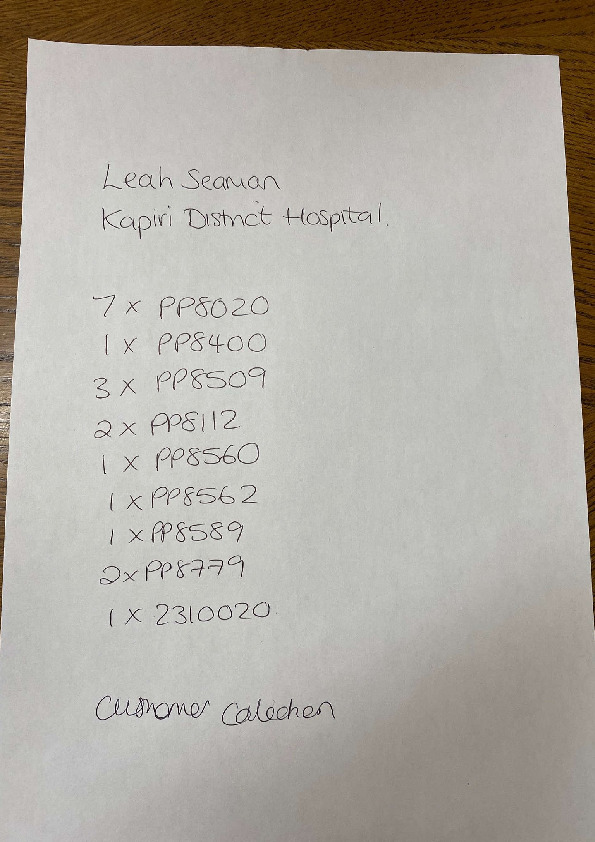 Leah Seaman
Kapiri District Hospital.
7 x PP8020
1 x PP8400
3 x PP8509
2 x PP8112
1 x PP8560
1 x PP8562
1 x PP8589
2 x PP8779
1 x 2310020
Customer Collection